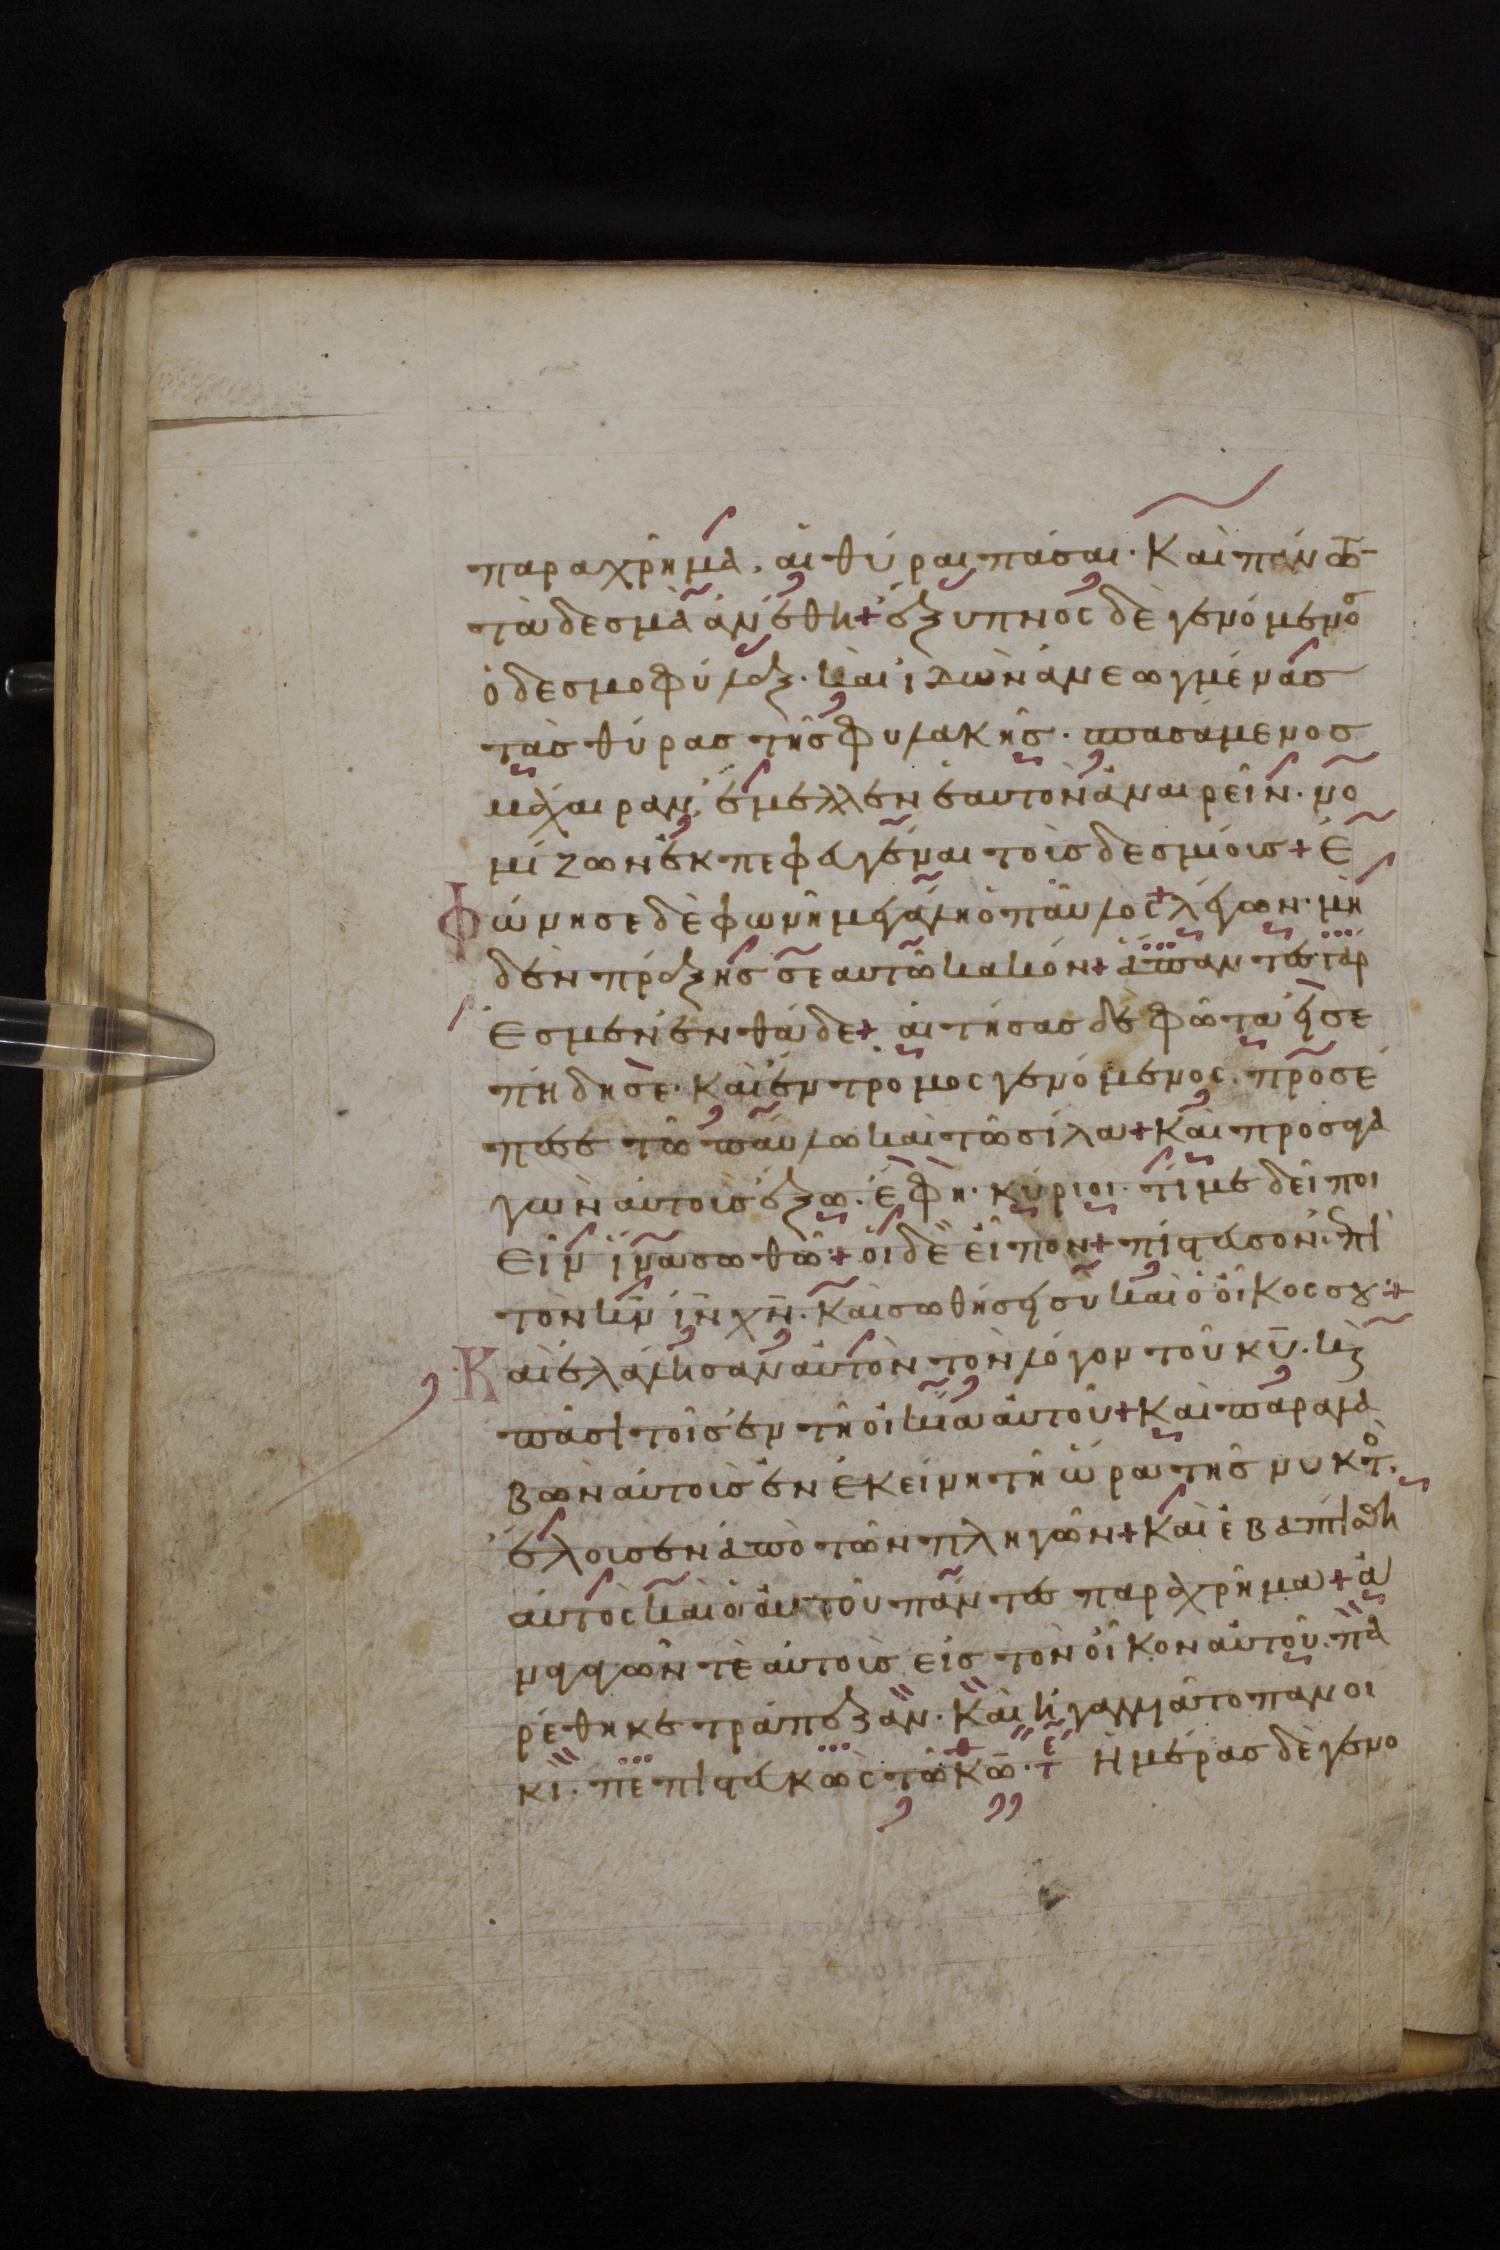 παραχρῆμα, αἱ θύραι πάσαι· Καὶ πάντων
τὰ δεσμὰ ἀνέθη + ἔξυπνος δὲ γενόμενος
ὁ δεσμοφύλαξ· καὶ ἰδὼν ἀνεωγμένας
τὰς θύρας τῆς φυλακῆς· σπασάμενος
μάχαιραν, ἔμελλεν ἑαυτὸν ἀναιρεῖν· νο
μίζων ἐκπεφευγέναι τοὺς δεσμίους + Ἐ
φώνησε δὲ φωνῆ μεγάλη ὁ παῦλος + λέγων· μη
δὲν πράξης σεαυτῶ κακόν + ἅπαντες γάρ
ἐσμεν ἐνθάδε + αἰτήσας δὲ φῶτα εἰσε
πήδησε· Καὶ ἔντρομος γενόμενος· προσέ
πεσε τῶ παύλω καὶ τῶ σίλα + Καὶ προσαγα
γὼν αὐτοὺς ἔξω· ἔφη· κύριοι· τί με δεῖ ποι
εῖν ἵνα σωθῶ + οἱ δὲ εἶπον + πίστευσον ἐπὶ
τὸν κν ιν χν· Καὶ σωθήση σὺ καὶ ὁ οἶκος σου +
Καὶ ἐλάλησαν αὐτὸν τὸν λόγον τοῦ κυ· καὶ
πᾶσι τοῖς ἐν τῆ οἰκία αὐτοῦ + Καὶ παραλα
βὼν αὐτοὺς ἐν ἐκείνη τῆ ὥρα τῆς νυκτὸς·
ἔλουσεν ἀπὸ τῶν πληγῶν + Καὶ ἐβαπτίσθη
αὐτὸς καὶ οἱ αὐτοῦ πάντες παραχρῆμα + ἀ
ναγαγών τε αὐτοὺς εἰς τὸν οἶκον αὐτοῦ· πα
ρέθηκε τράπεζαν· Καὶ ἠγαλλιᾶτο πανοι
κὶ· πεπιστευκὼς τῶ κω· + Ἡμέρας δὲ γενο